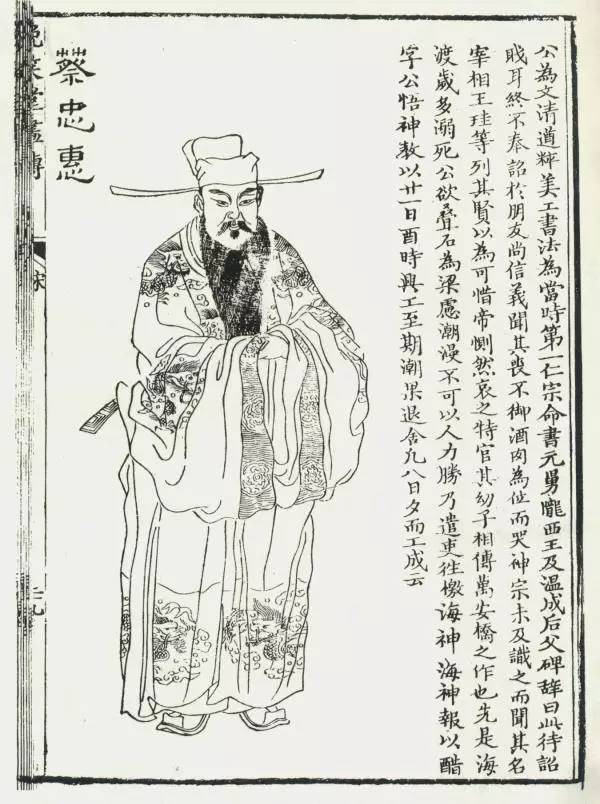 公為文清遒粹美工書法為當時第一仁宗命書元舅隴西王及溫成后父碑辭曰此待詔
職耳終不奉詔於朋友尚信義聞其喪不御酒肉為位而哭神宗未及識之而聞其名
宰相王珪等列其賢以為可惜帝惻然哀之特官其幼子相傳萬安橋之作也先是海
渡歲多溺死公欲叠石為梁慮潮漫不可以人力勝乃遣吏往檄海神海神報以醋
字公悟神教以廿一日酉時興工至期潮果退舍凢八日夕而工成云
蔡忠惠
晚笑堂畫傳